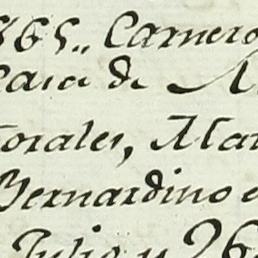 865,, Carnero
Casa de A
orales, Mar
Bernardino e
Julio y 26